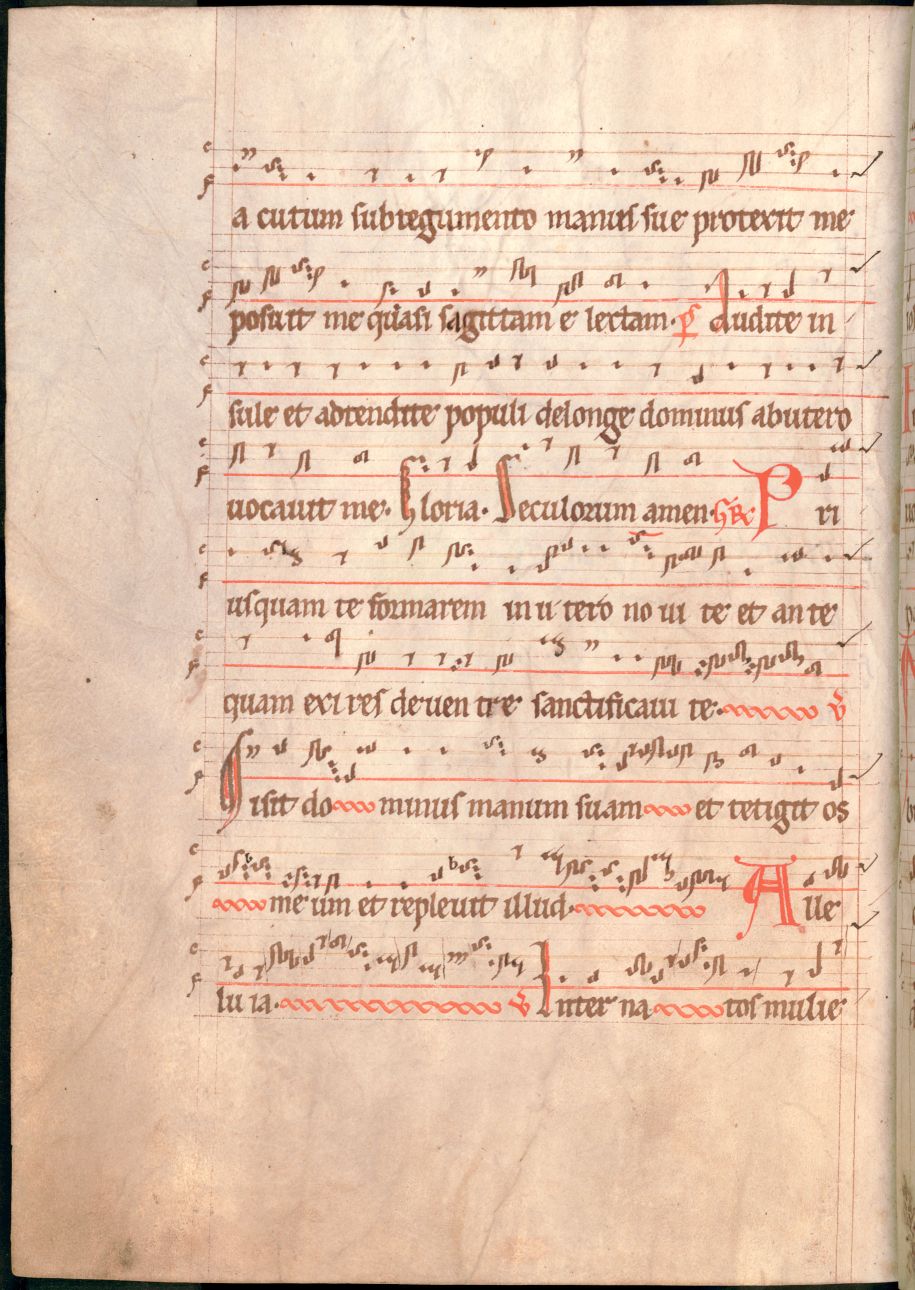 a cutum subtegumento manus sue protexit me
posuit me quasi sagittam e lectam. ps Audite in
sule et adtendite populi delonge dominus abutero
uocauit me. Gloria. Seculorum amen. Gr Pri
usquam te formarem in u tero no ui te et an te
quam exi res deuen tre sanctificaui te. v
Misit do minus manum suam et tetigit os
me um et repleuit illud. Alle
lu ia. v Inter na tos mulie